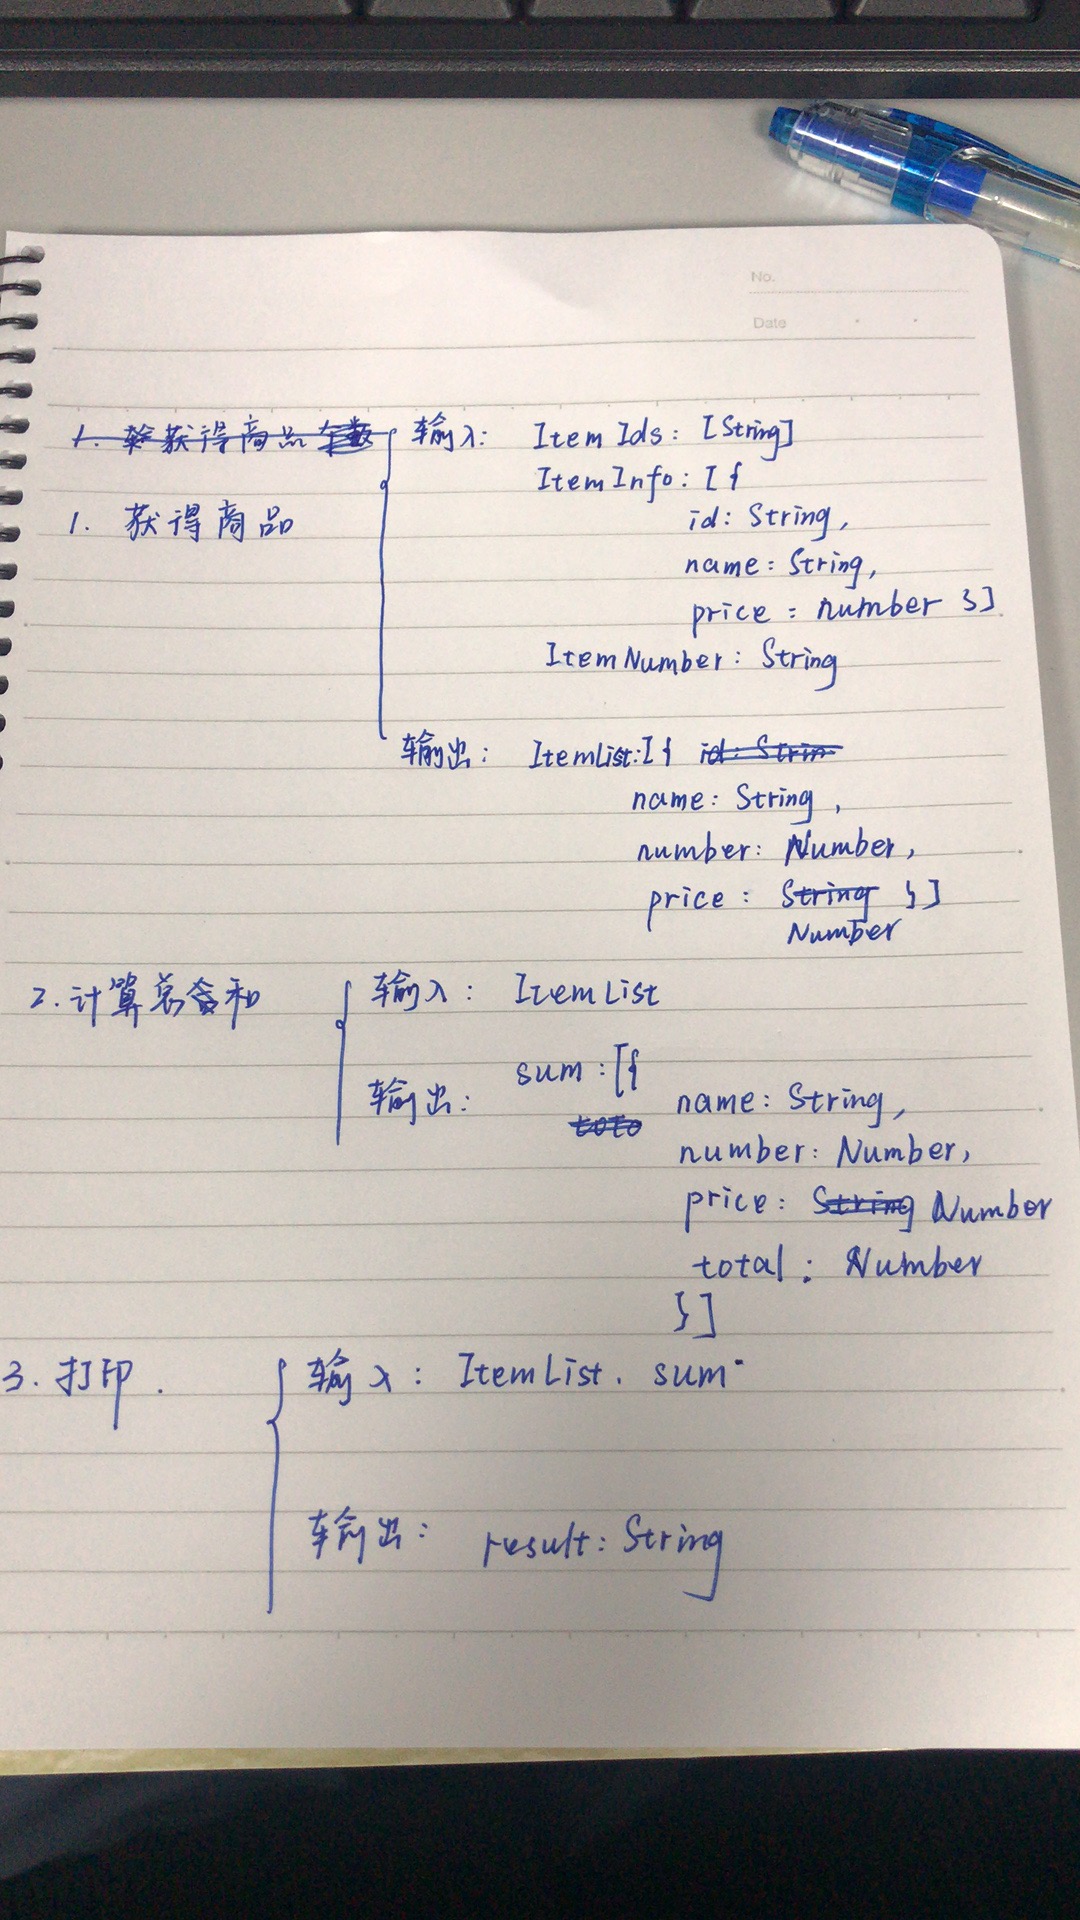 No.
Date
1. 获得商品
输入: Item Ids: [String]
ItemInfo: [{
1. 获得商品
id: String,
name: String,
price: number }]
ItemNumber: String
输出: ItemList:[{ id: Strin
name: String,
number: Number,
price: String }]
Number
2. 计算总和
输入: ItemList
sum:[{
输出: name: String,
toto
number: Number,
price: String Number
total: Number
}]
3. 打印. 输入: ItemList. sum
输出: result: String